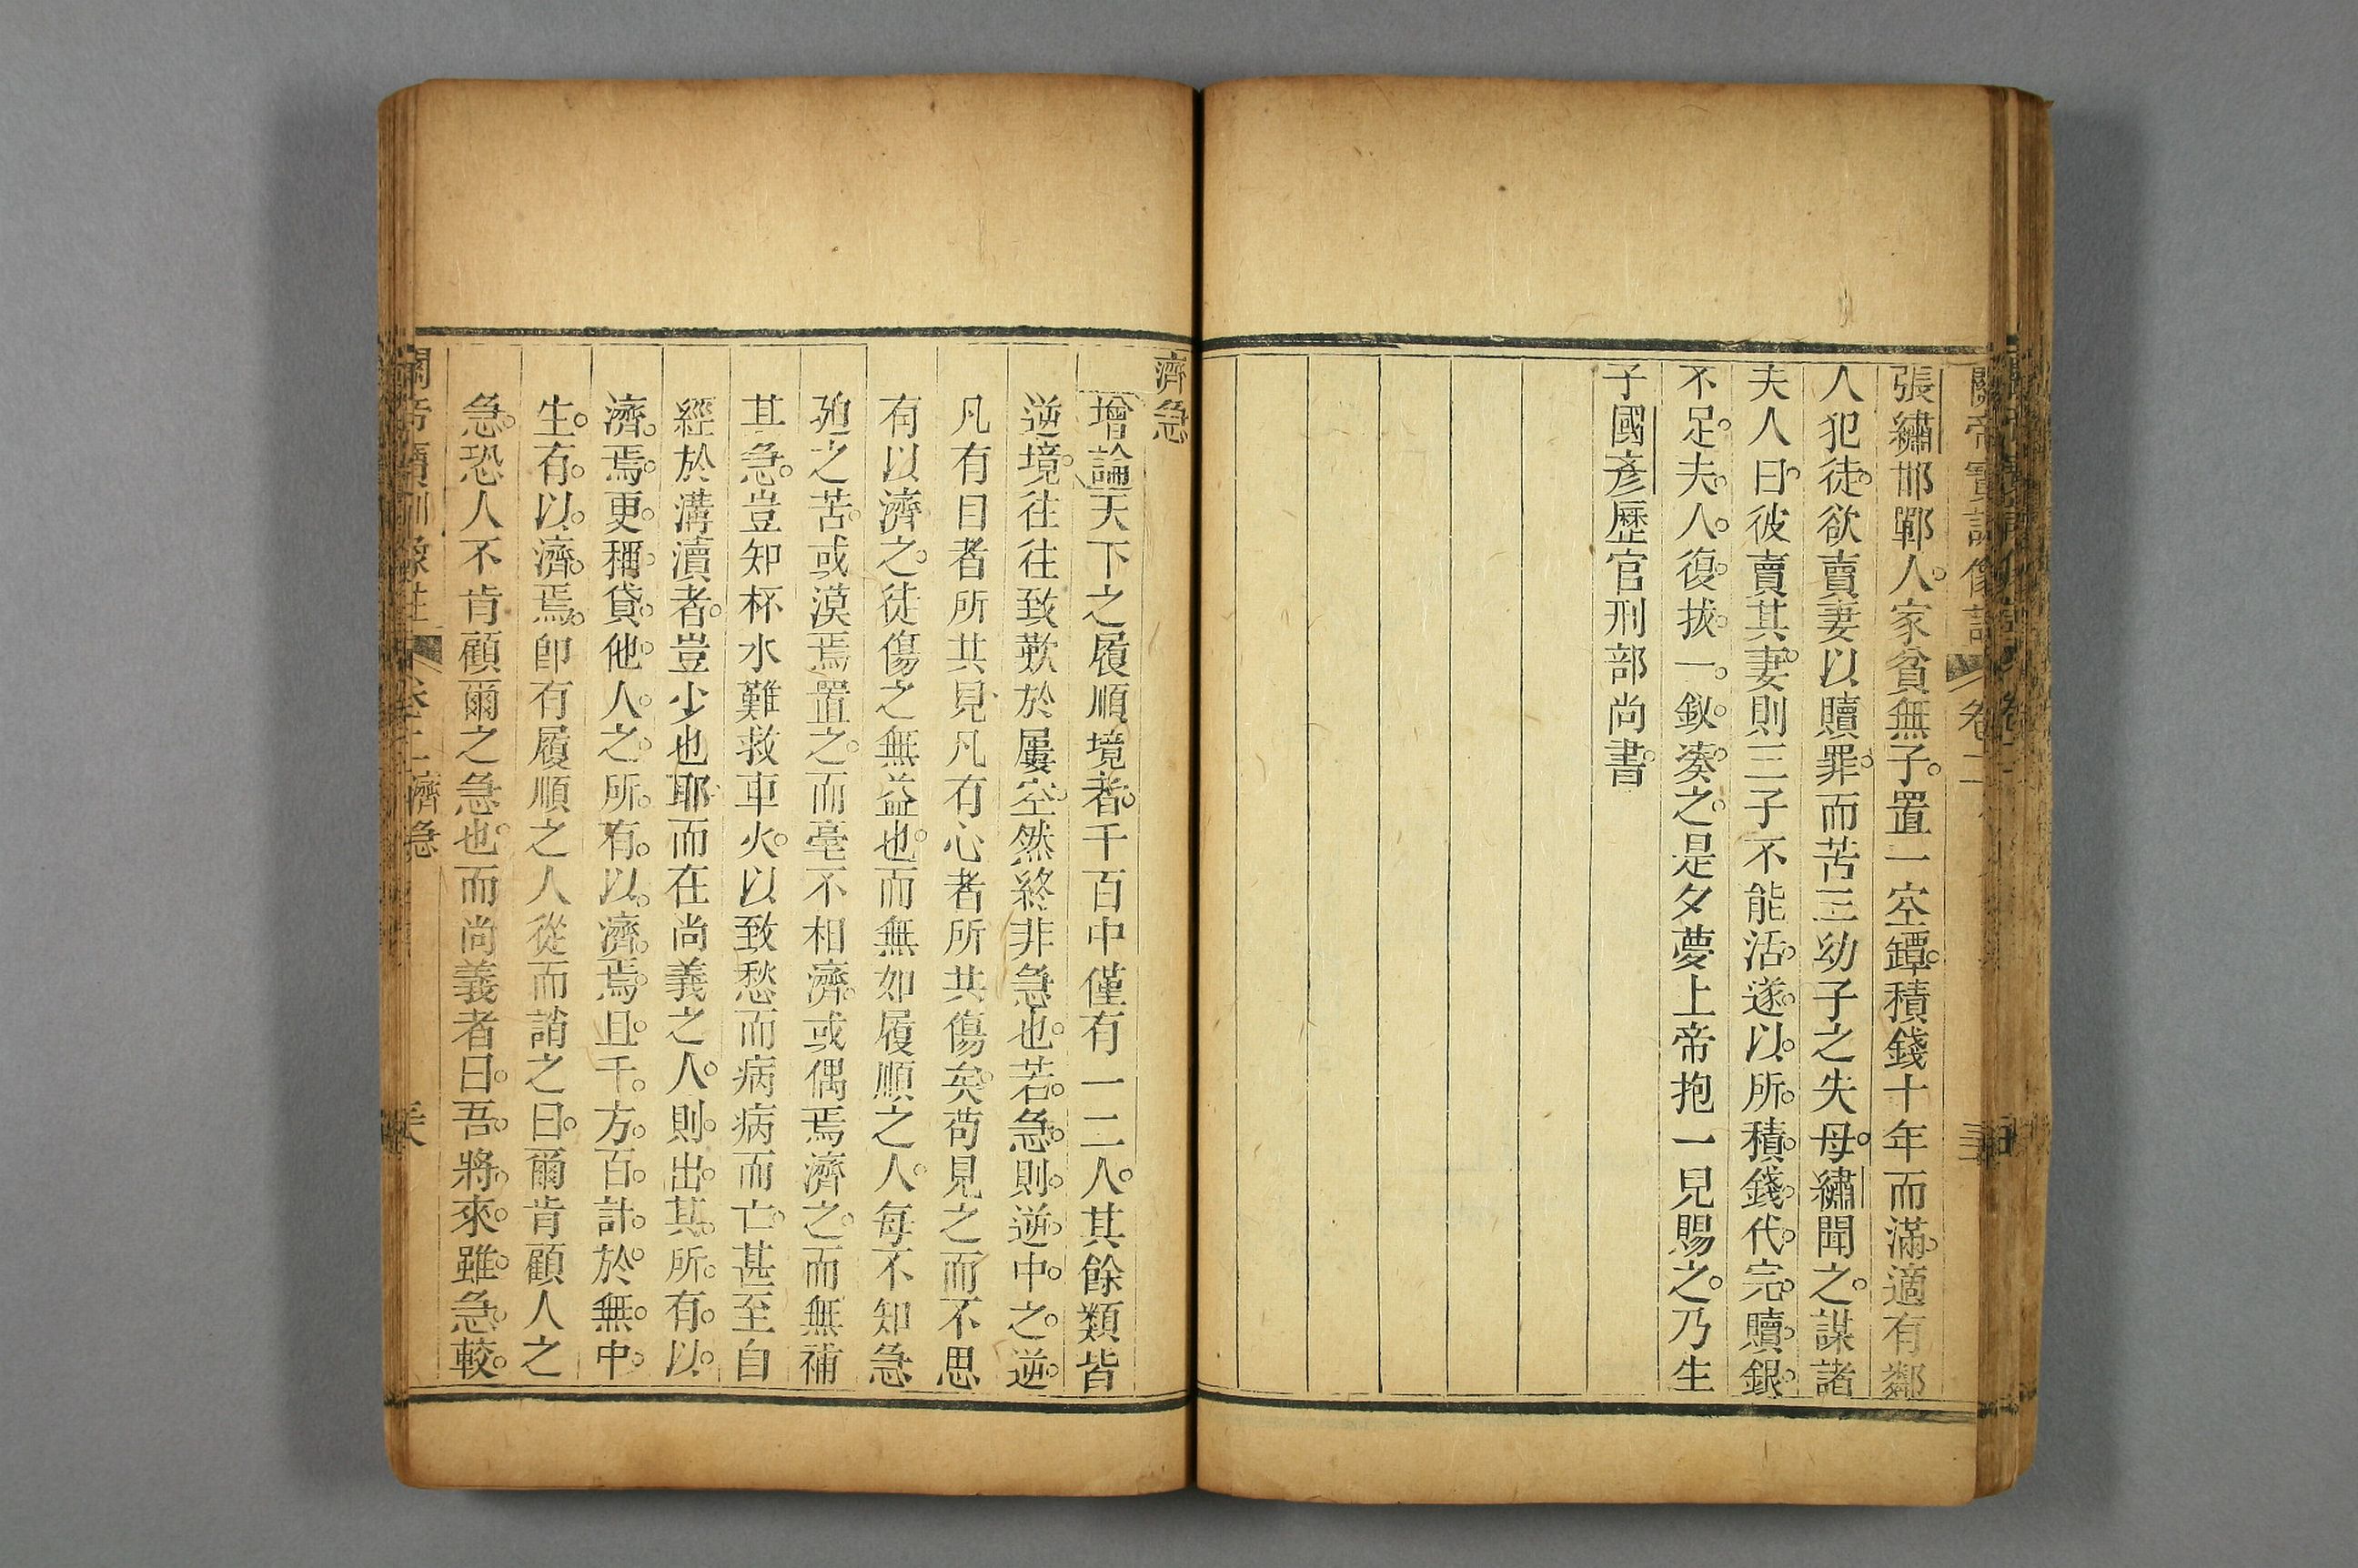 關帝寶訓像註 卷二
張繡邯鄲人。家貧無子。置一空罈。積錢十年而滿。適有鄰
人犯徒。欲賣妻以贖罪。而苦三幼子之失母。繡聞之。謀諸
夫人曰。彼賣其妻。則三子不能活。遂。以。所。積。錢。代。完。贖。銀。
不足。夫。人。復。拔。一。釵。湊。之。是夕夢上帝抱一兒賜之。乃生
子國彥歷官刑部尚書。
濟急
增論天下之履順境者。千百中僅有一二人。其餘類皆
逆境。往往致歎於屢空。然終非急也。若。急。則。逆。中。之。逆。
凡有目者所共見。凡有心者所共傷矣。苟見之而不思
有以濟之。徒傷之無益也。而無如履順之人。每不知急
廹之苦。或漠焉置之。而毫不相濟。或偶焉濟之。而無補
其急。豈知杯水難救車火。以致愁而病病而亡。甚至自
經於溝瀆者。豈少也耶。而在尚義之人。則。出。其。所。有。以。
濟。焉。更。稱。貸。他。人。之。所。有。以。濟。焉。且。千。方。百。計。於。無。中。
生。有。以。濟。焉。卽有履順之人從而誚之曰。爾肯顧人之
急。恐人不肯顧爾之急也。而尚義者曰。吾。將。來。雖。急。較。
關帝寶訓像註 卷二 濟急